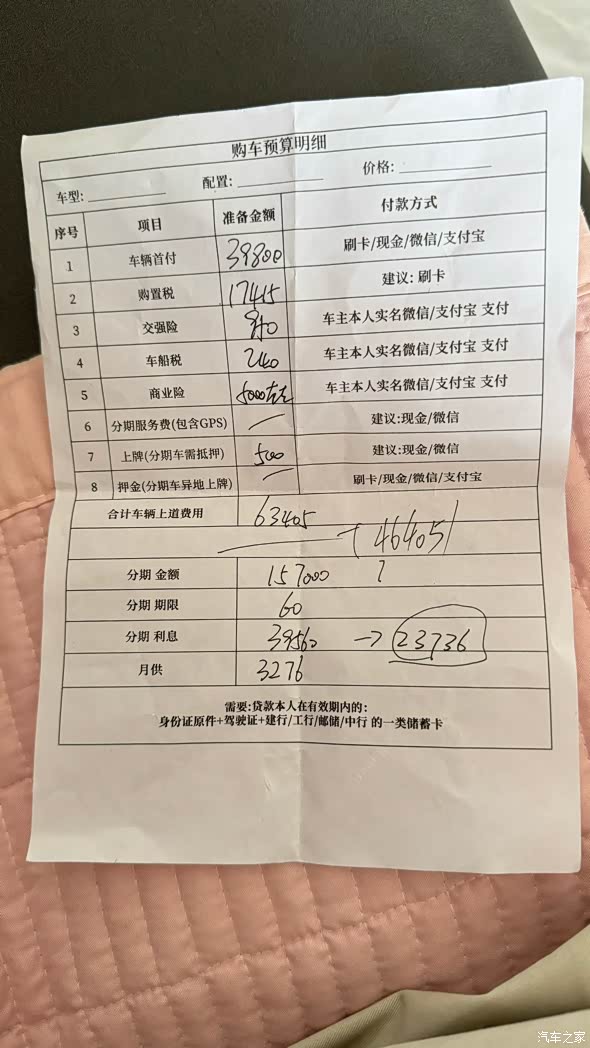 购车预算明细
车型: 配置: 价格:
序号 项目 准备金额 付款方式
1 车辆首付 39800 刷卡/现金/微信/支付宝
2 购置税 17415 建议: 刷卡
3 交强险 950 车主本人实名微信/支付宝 支付
4 车船税 240 车主本人实名微信/支付宝 支付
5 商业险 5000左右 车主本人实名微信/支付宝 支付
6 分期服务费(包含GPS) 建议:现金/微信
7 上牌(分期车需抵押) 500 建议:现金/微信
8 押金(分期车异地上牌) 刷卡/现金/微信/支付宝
合计车辆上道费用 63405
(46405)
分期 金额 157000
分期 期限 60
分期 利息 39560 → 23736
月供 3276
需要:贷款本人在有效期内的:
身份证原件+驾驶证+建行/工行/邮储/中行 的一类储蓄卡
汽车之家